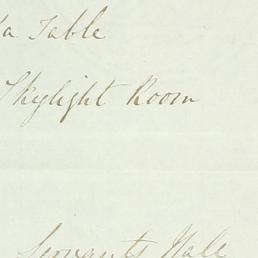 a Table
Skylight Room
Servants Hall